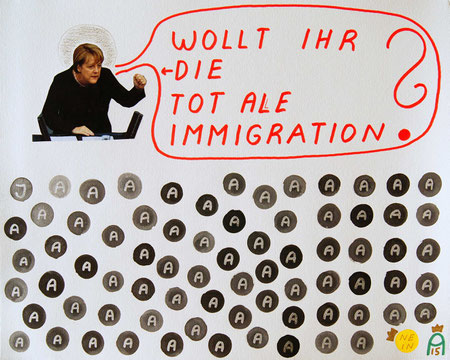 WOLLT IHR
←DIE
TOTALE
IMMIGRATION?
J A A A A A A A A A A A
A A A A A A A A A A A
A A A A A A A A A A A A
A A A A A A A A A A A
A A A A A A A A A A A A
A A A A A A A A A A A
A A A A A A A A A A A
NE
IN
A
15